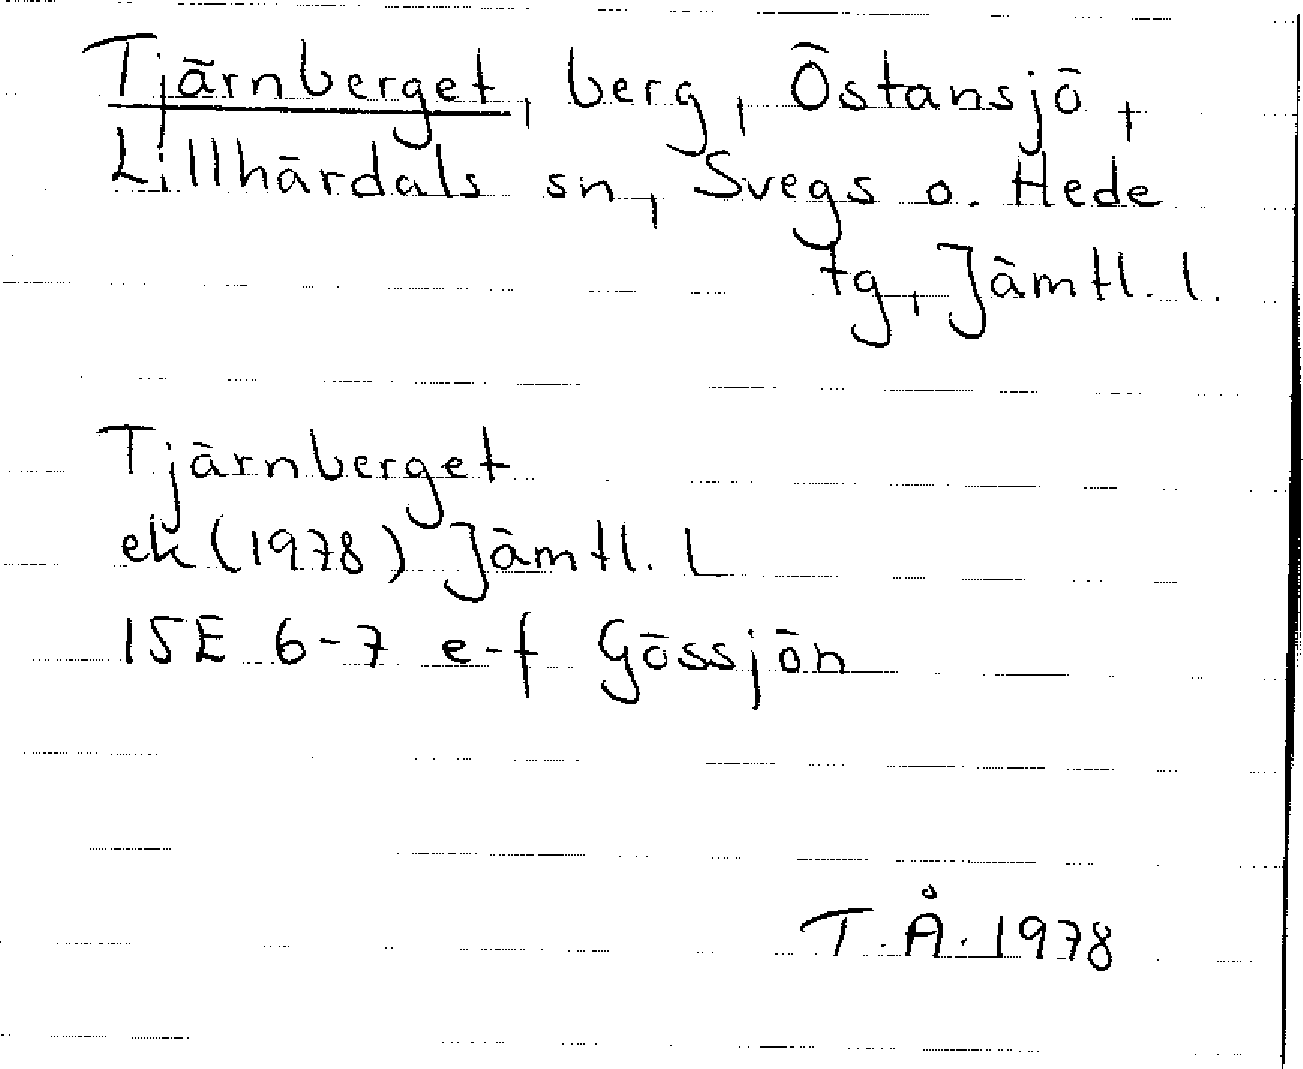 Tjärnberget, berg, Östansjö,
Lillhärdals sn, Svegs o. Hede
tg, Jämtl. l.
Tjärnberget
ek (1978) Jämtl. L
15E 6-7 e-f Gössjön
T.Å. 1978